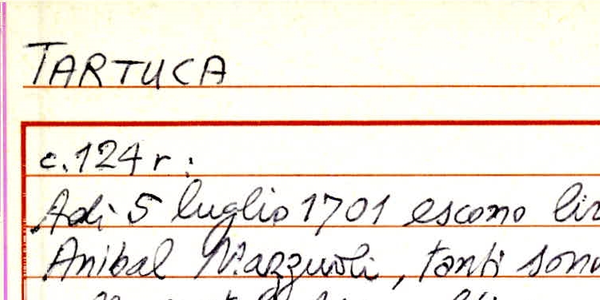 TARTUCA
c. 124 r:
Adi 5 luglio 1701 escono
Anibal Mazzuoli, tanti